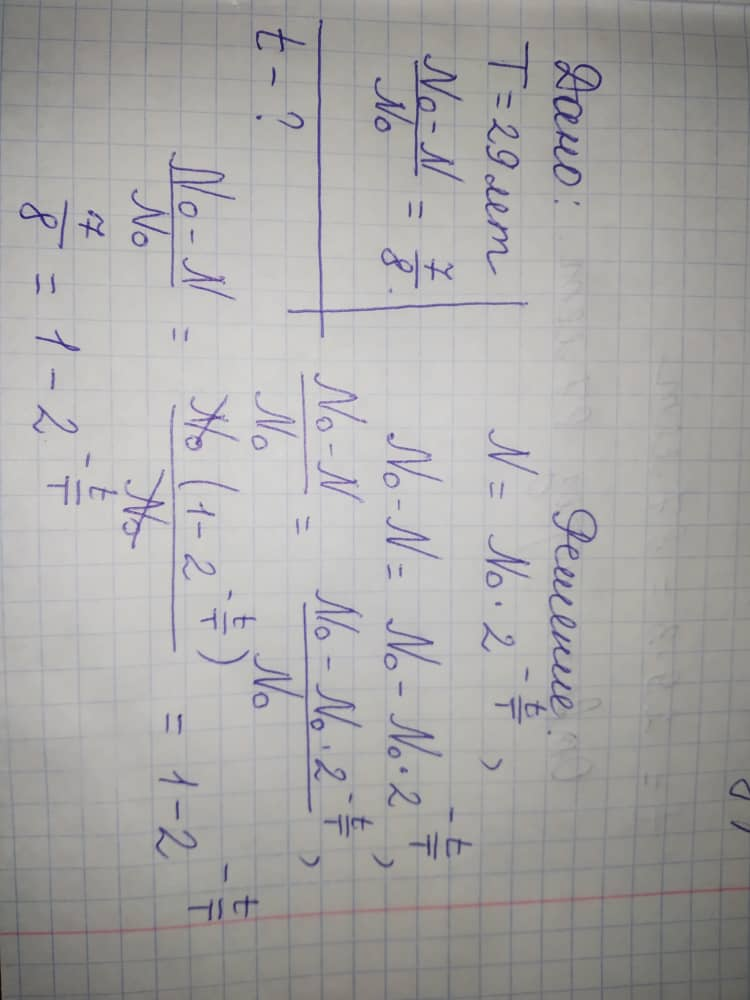 Дано:
T = 29 лет
(N₀ - N)/N₀ = 7/8.
t - ?
Решение:
N = N₀ · 2^(-t/T),
N₀ - N = N₀ - N₀ · 2^(-t/T),
(N₀ - N)/N₀ = (N₀ - N₀ · 2^(-t/T))/N₀,
(N₀ - N)/N₀ = N₀ (1 - 2^(-t/T))/N₀ = 1 - 2^(-t/T)
7/8 = 1 - 2^(-t/T)